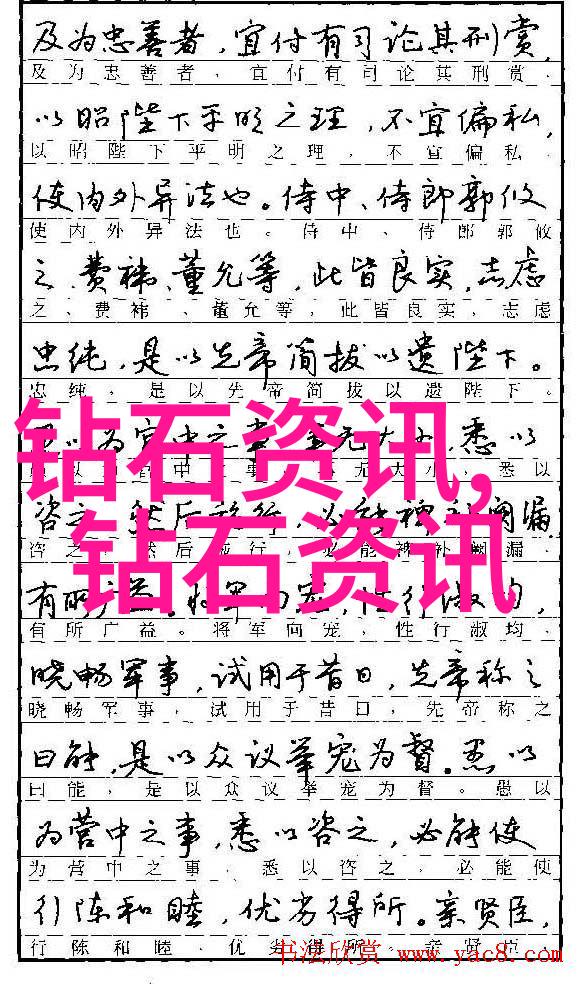 及为忠善者，宜付有司论其刑赏，
及为忠善者，宜付有司论其刑赏，
以昭陛下平明之理，不宜偏私，
以昭陛下平明之理，不宜偏私，
使内外异法也。侍中、侍郎郭攸
使内外异法也。侍中、侍郎郭攸
之、费祎、董允等，此皆良实，志虑
之、费祎、董允等，此皆良实，志虑
忠纯，是以先帝简拔以遗陛下。
忠纯，是以先帝简拔以遗陛下。
以为宫中之事，无大小，悉以
以中事无大小，悉以
钻石资讯,
咨之，然后施行，必能裨补阙漏，
咨之，然后施行，必能裨补阙漏，
钻石资讯
有所广益。将军向宠，性行淑均，
有所广益。将军向宠，性行淑均，
晓畅军事，试用于昔日，先帝称之
晓畅军事，试用于昔日，先帝称之
曰能，是以众议举宠为督。愚以
曰能，是以众议举宠为督。愚以
为营中之事，悉以咨之，必能使
为营中之事，悉以咨之，必能使
行阵和睦，优劣得所。亲贤臣，
行陈和睦，优劣得所。亲贤臣，
书法欣赏 www.yac8.com